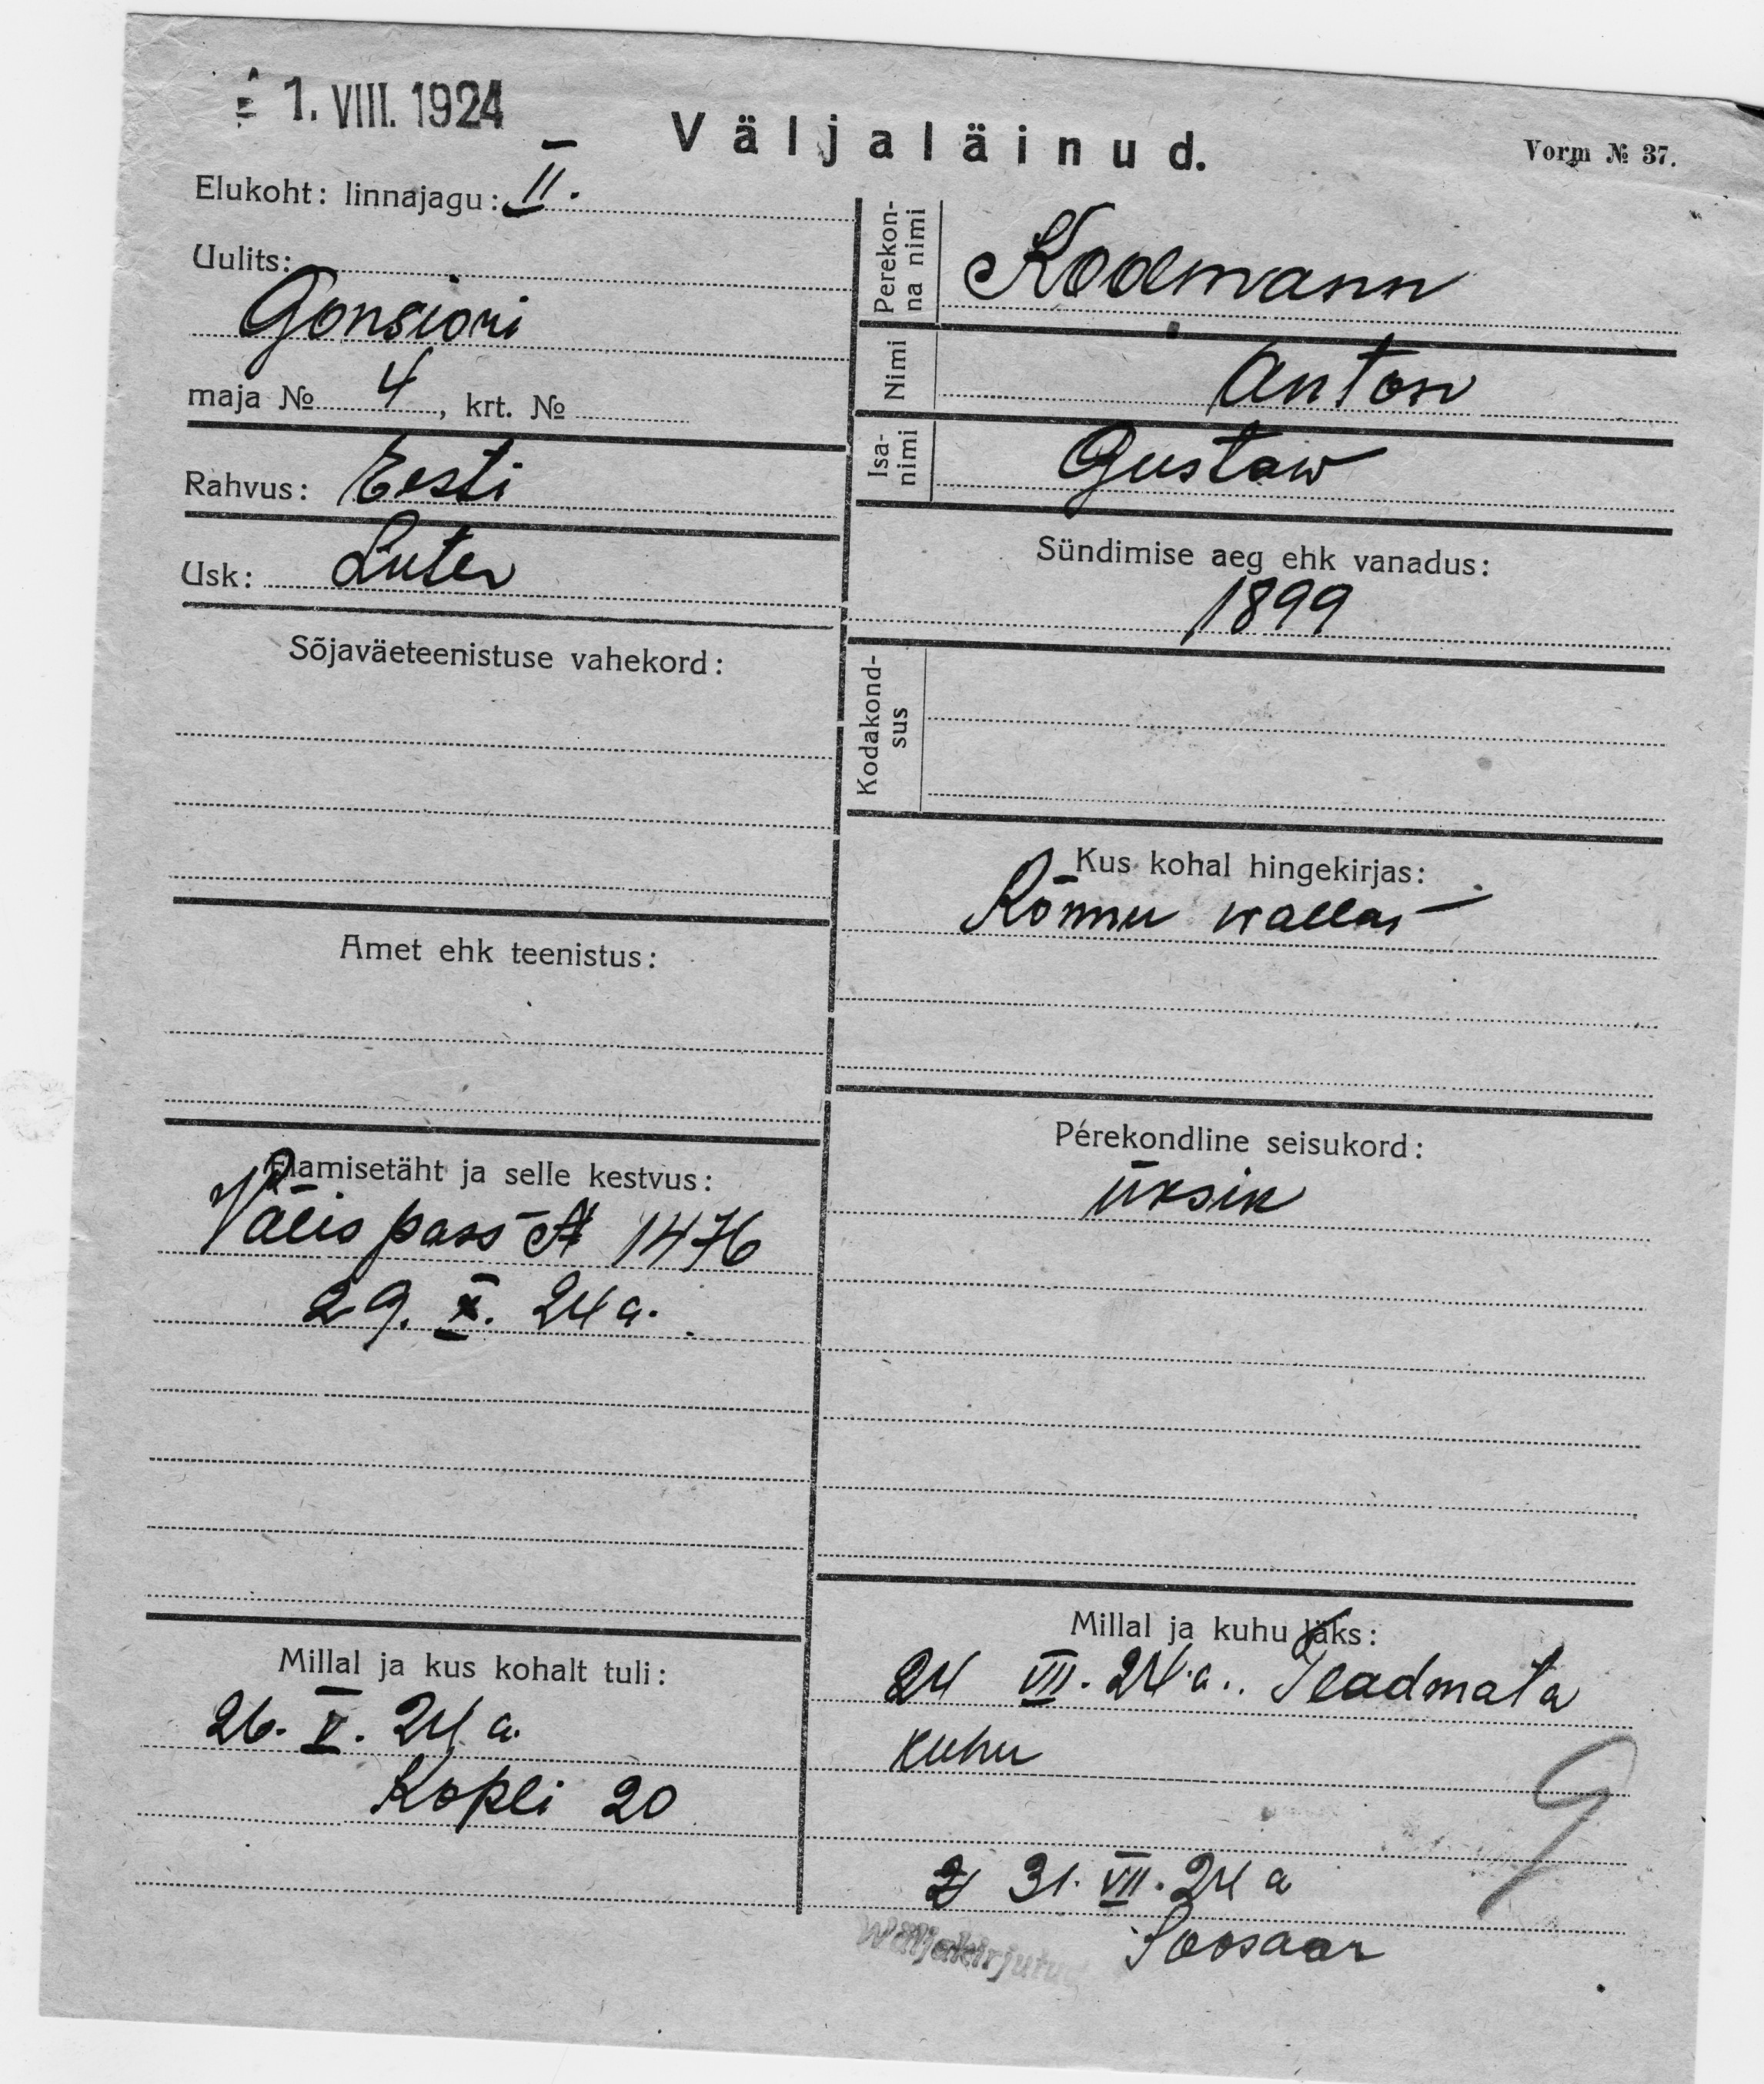 1. VIII. 1924
Väljaläinud.
Vorm № 37.
Elukoht: linnajagu: II.
Uulits:
Gonsiori
maja № 4, krt. №
Rahvus: Eesti
Usk: Luter
Sõjaväeteenistuse vahekord:
Amet ehk teenistus:
Elamisetäht ja selle kestvus:
Välis pass A 1476
29. X. 24 a.
Millal ja kus kohalt tuli:
26. V. 24 a.
Kopli 20
Perekon-
na nimi
Koolmann
Nimi Anton
Isa-
nimi
Gustaw
Sündimise aeg ehk vanadus:
1899
Kodakond-
sus
Kus kohal hingekirjas:
Kõnnu wallas
Perekondline seisukord:
üksik
Millal ja kuhu läks:
24 VII. 24 a. Teadmata
kuhu
9
31. VII. 24 a
Wäljakirjutud
Soosaar